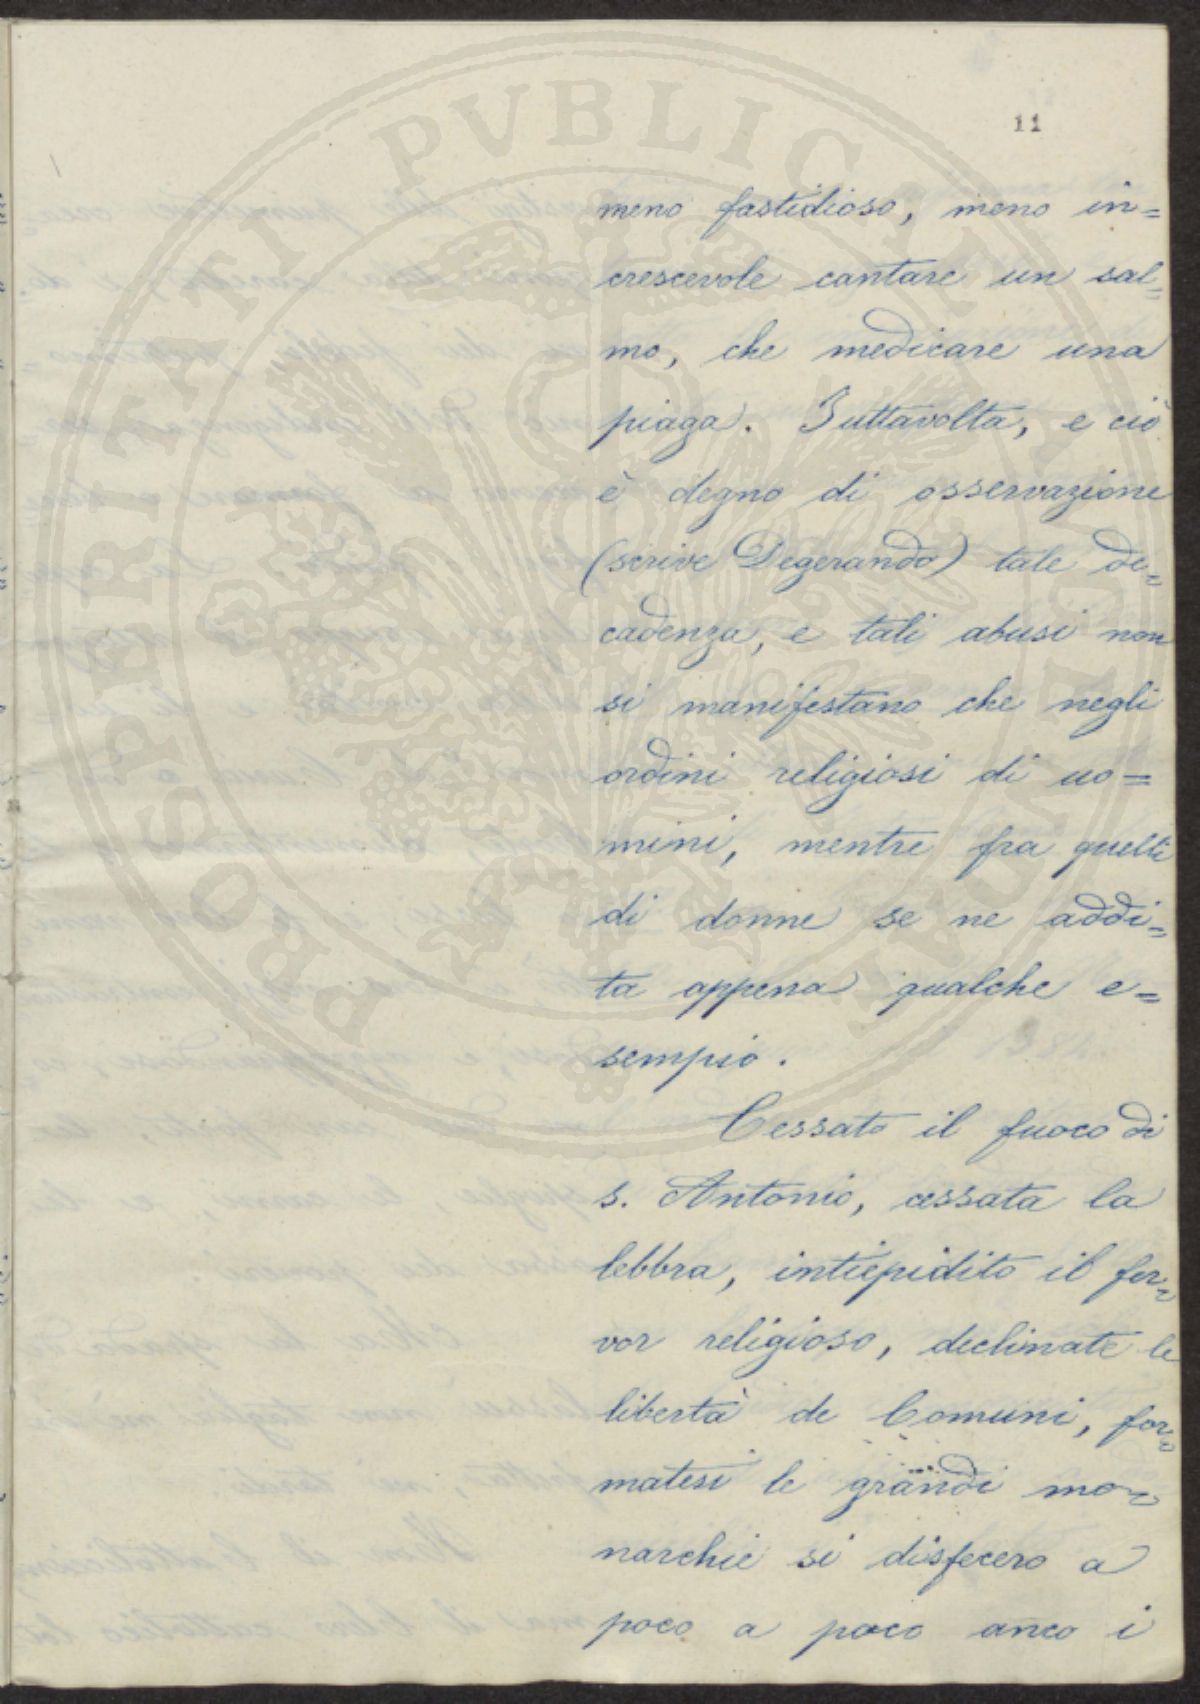 PROSPERITATI PVBLICAE AVGENDAE
11
meno fastidioso, meno in=
crescevole cantare un sal=
mo, che medicare una
piaga. Tuttavolta, e ciò
è degno di osservazione
(scrive Degerando) tale de=
cadenza, e tali abusi non
si manifestano che negli
ordini religiosi di uo=
mini, mentre fra quelli
di donne se ne addi=
ta appena qualche e=
sempio.
Cessato il fuoco di
s. Antonio, cessata la
lebbra, intiepidito il fer=
vor religioso, declinate le
libertà de Comuni, for=
matesi le grandi mo=
narchie si disfecero a
poco a poco anco i